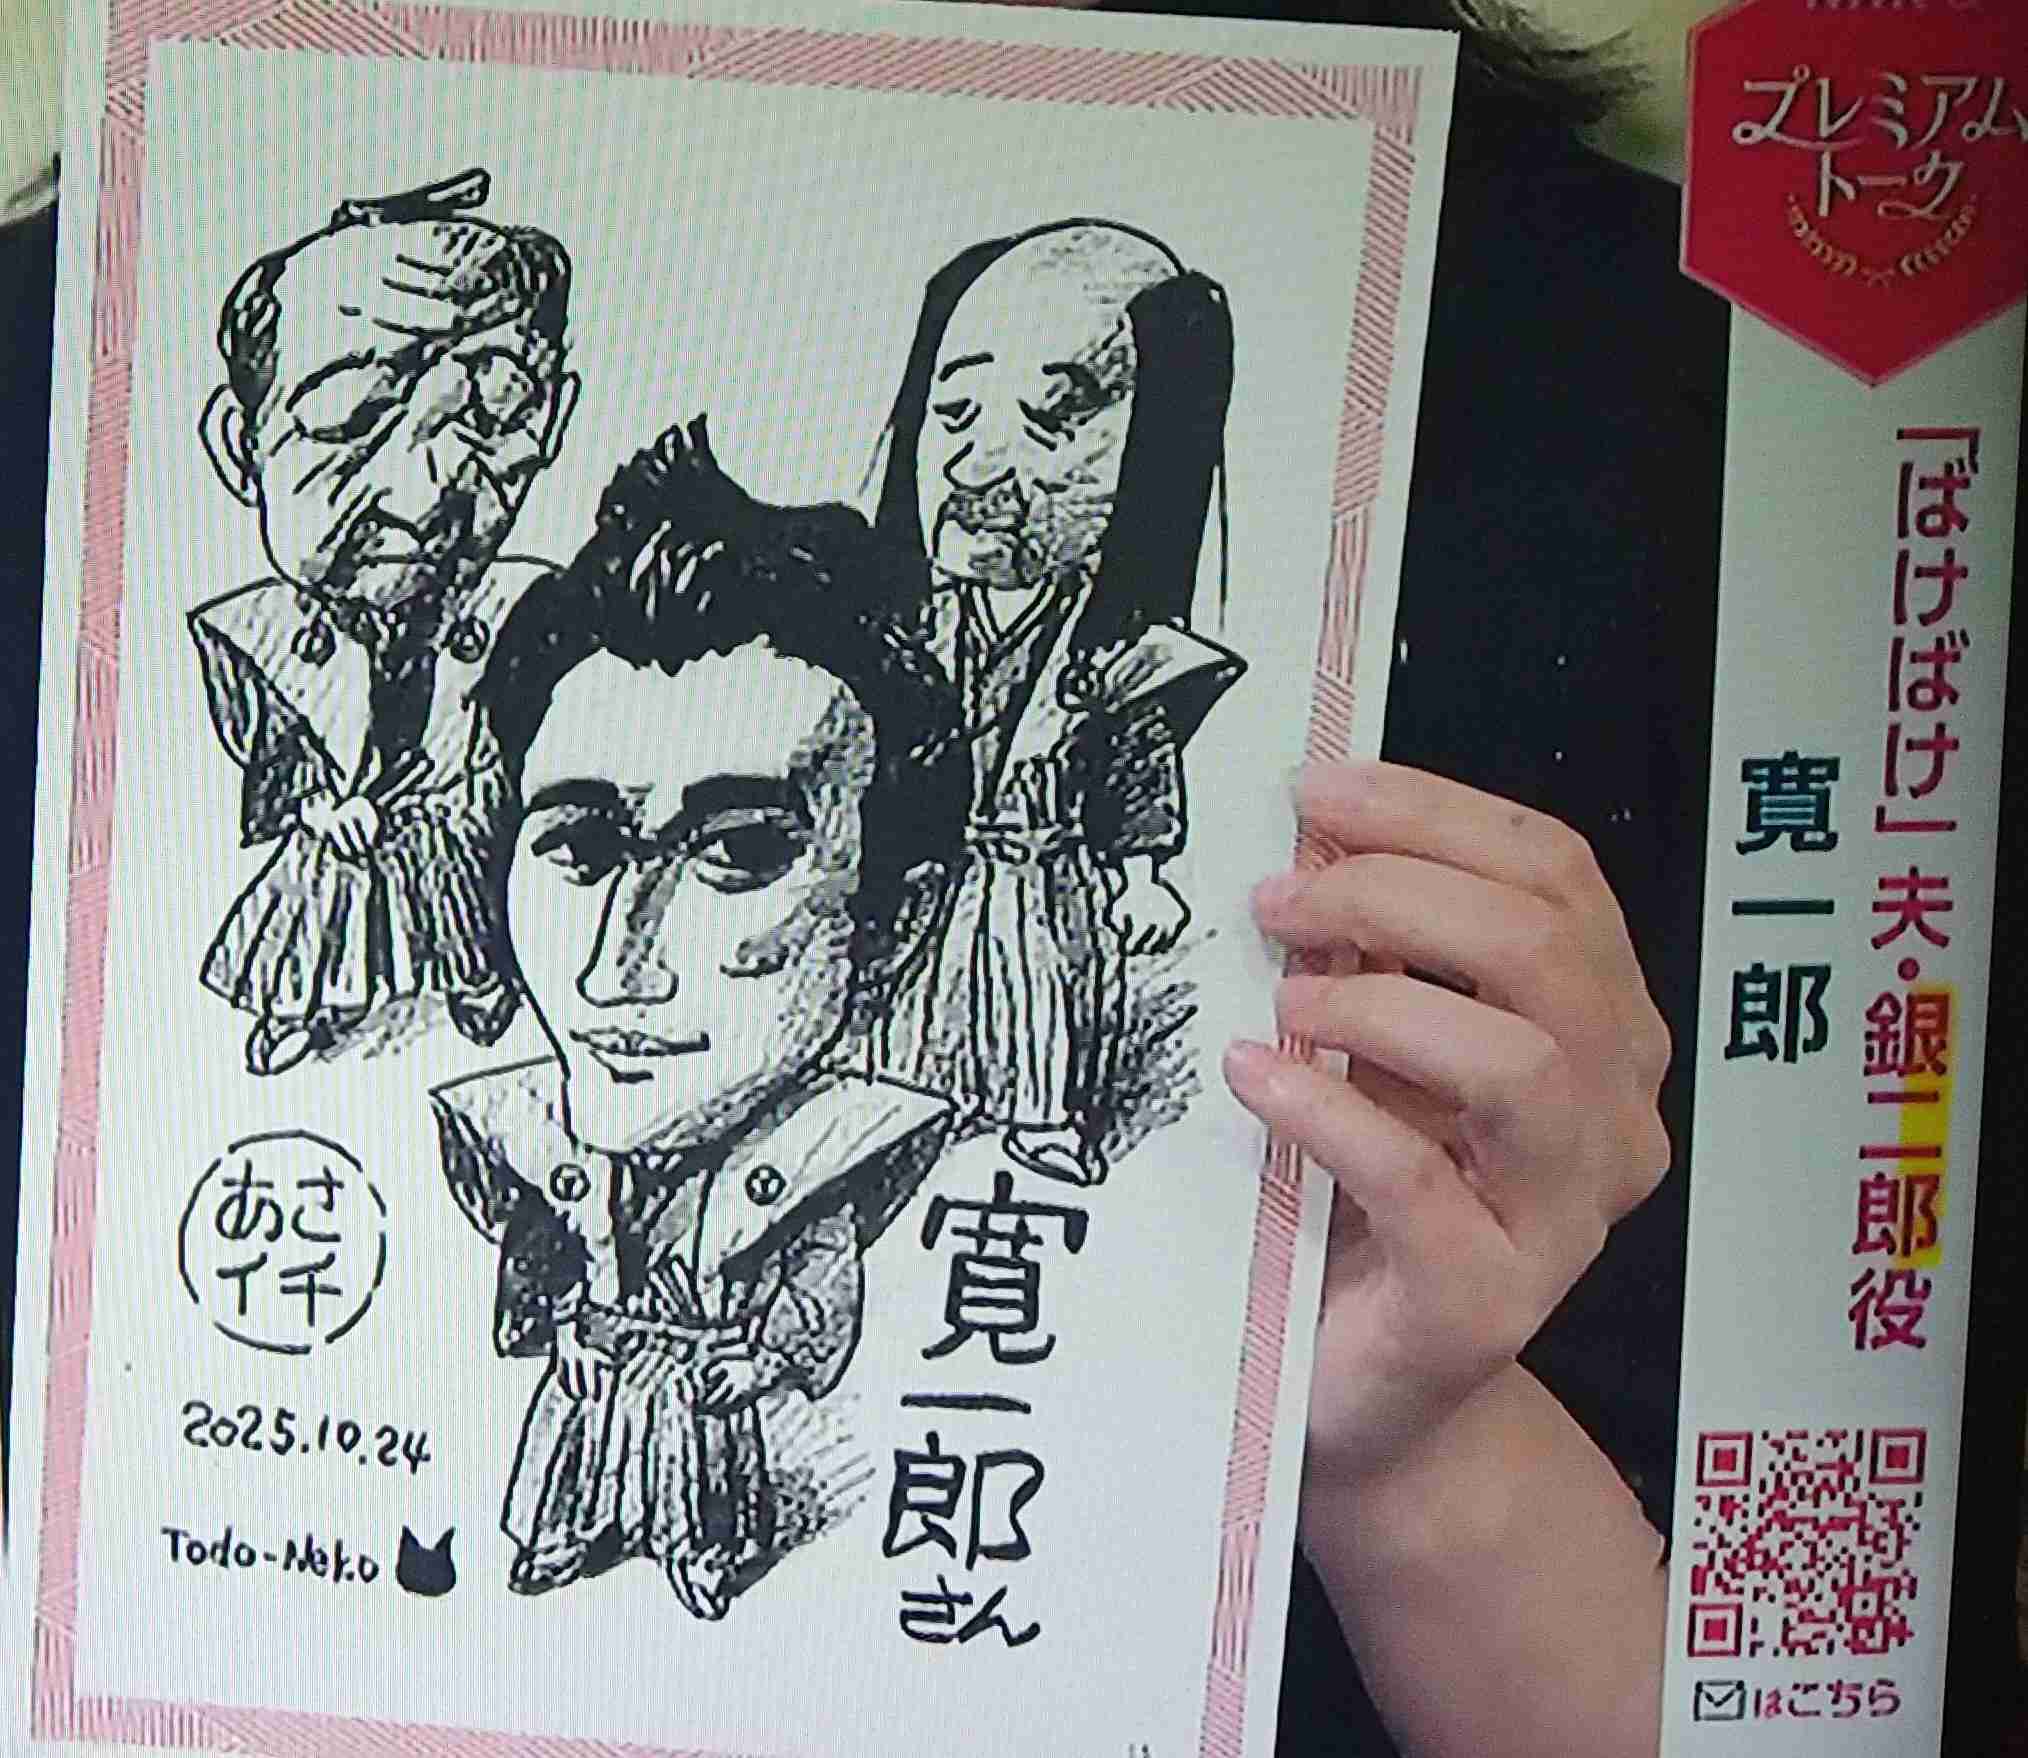 プレミアム
トーク
「ばけばけ」夫・銀二郎役
寛一郎
はこちら
寛一郎さん
あさ
イチ
2025.10.24
Todo-Neko